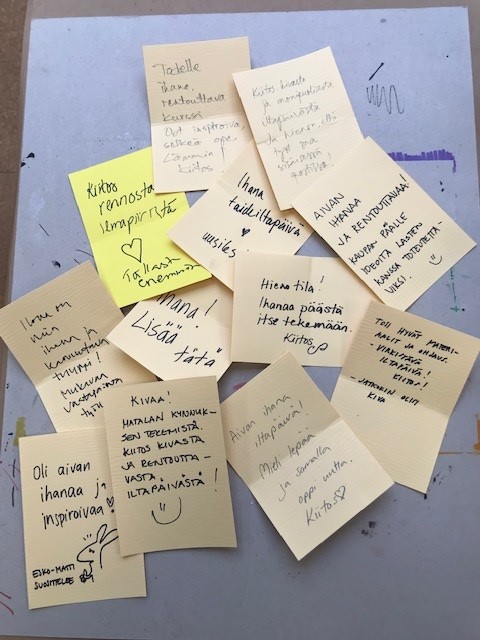 Todella
ihana,
rentouttava
kurssi
Olit inspiroiva,
selkeä ope.
Lämmin
kiitos!
Kiitos kivasta
ja monipuolisesta
iltapäivästä
Ja hienoa, että
työt
Kiitos
rennosta
ilmapiiristä
♡
Tällaista
enemmän
Ihana
taideiltapäivä
♥
uusiksi
AIVAN
IHANAA
JA RENTOUTTAVAA!
KAUPAN PÄÄLLE
IDEOITA LASTEN
KANSSA TOTEUTETTA-
VIKSI.
Ilona on
niin
ihana ja
kannustava
tyyppi!
Mukavaa
vastapainoa
työlle
Ihana!
Lisää
tätä
Hieno tila!
Ihanaa päästä
itse tekemään.
Kiitos
TOSI HYVÄT MATERI-
AALIT JA OHJAUS.
- VIRKISTÄVÄ
ILTAPÄIVÄ!
KIITOS!
OLIVAT
KIVA
KIVAA!
MATALAN KYNNYK-
SEN TEKEMISTÄ.
KIITOS KIVASTA
JA RENTOUTTA-
VASTA
ILTAPÄIVÄSTÄ!
Aivan ihana
iltapäivä!
Mieli lepää
ja samalla
oppi uutta.
Kiitos ♡
Oli aivan
ihanaa ja
inspiroivaa!
ESKO-MATTI
SUOSITTELEE